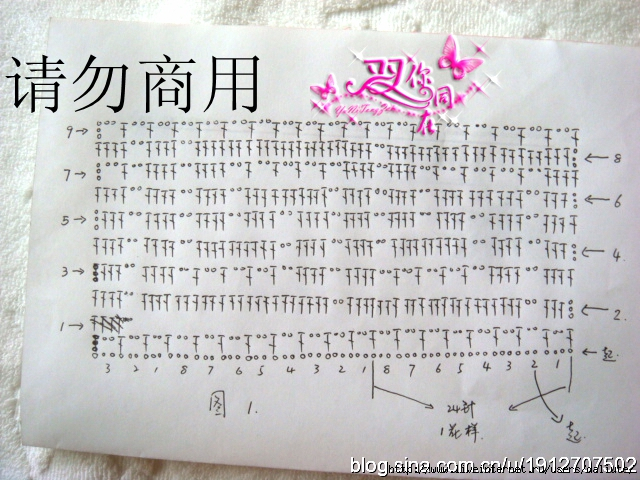 请勿商用
双你同在
YuNiTongZai
9→
←8
7→
←6
5→
←4.
3→
←2.
1→
←起.
3 2 1 8 7 6 5 4 3 2 1 8 7 6 5 4 3 2 1
图 1.
24针
1花样.
起.
blog.sina.com.cn/u/1912707502